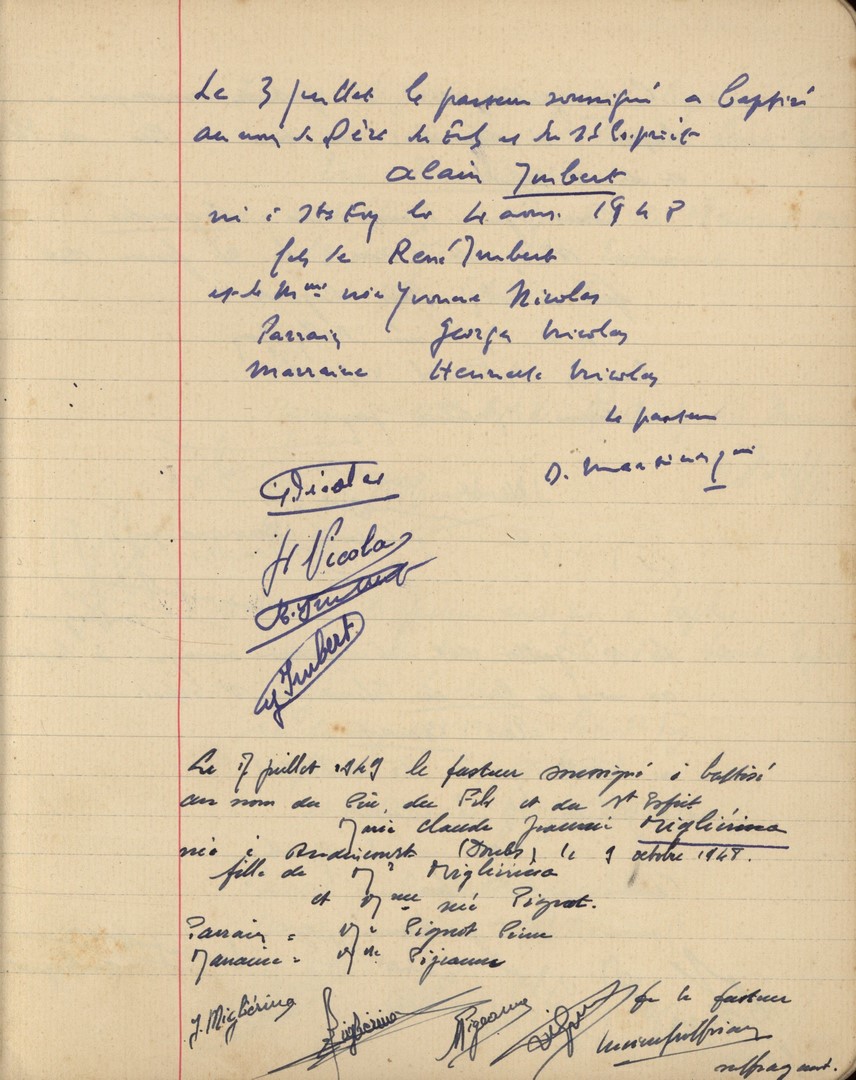 Le 3 juillet le pasteur soussigné a baptisé
au nom du Père du Fils et du St Esprit
Alain Imbert
né à le 4 1948
fils de René Imbert
et de Mme née Yvonne Nicolas
Parrain Georges Nicolas
Marraine Nicolas
Le pasteur
D.
G Nicolas
H Nicolas
R. Imbert
Y Imbert
Le 17 juillet 1949 le pasteur soussigné à baptisé
au nom du Père, du Fils et du St Esprit
Marie Claude Migliérina
née à Audincourt (Doubs) le 9 octobre 1948.
fille de Mr Migliérina
et Mme née Pignot.
Parrain = Mr Pignot
Marraine = Mme
J. Migliérina
Migliérina
pr le pasteur
suffragant.